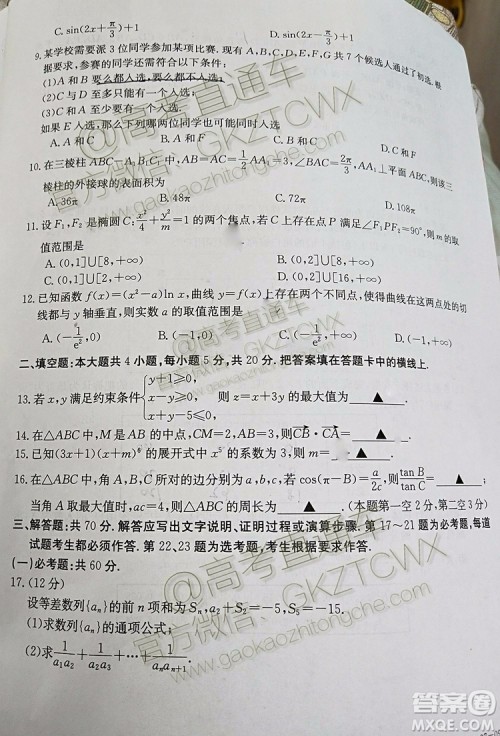 C. sin(2x+π/3)+1 D. sin(2x−π/3)+1
9. 某学校需要派 3 位同学参加某项比赛. 现有 A, B, C, D, E, F, G, 共 7 个候选人通过了初选. 根
据要求, 参赛的同学还需满足以下条件:
(1)A 和 B 要么都入选, 要么都不入选.
(2)C 与 D 至多只能有一个人入选.
如果 E 入选, 那么下列哪两位同学也可能同时入选
A. A和C B. A和F C. B和G D. C和F
10. 在三棱柱 ABC−A₁B₁C₁ 中, AB=AC=1/2 AA₁=3, ∠BAC=2π/3, AA₁⊥平面 ABC, 则该三
棱柱的外接球的表面积为
A. 36π B. 48π C. 72π D. 108π
11. 设 F₁, F₂ 是椭圆 C: x²/4+y²/m=1 的两个焦点, 若 C 上存在点 P 满足∠F₁PF₂=90°, 则 m 的取
值范围是
A. (0,1]∪[8,+∞) B. (0,2]∪[8,+∞)
C. (0,1]∪[16,+∞) D. (0,2]∪[16,+∞)
12. 已知函数 f(x)=(x²−a)ln x, 曲线 y=f(x) 上存在两个不同点, 使得曲线在这两点处的切
线都与 y 轴垂直, 则实数 a 的取值范围是
A. (−1/e²,0) B. (−1,0) C. (−1/e²,+∞) D. (−1,+∞)
二、填空题: 本大题共 4 小题, 每小题 5 分, 共 20 分. 把答案填在答题卡中的横线上.
13. 若 x, y 满足约束条件{y+1≥0, x−y≤0, x+y−5≤0, 则 z=x+3y 的最大值为 ▲ .
14. 在△ABC 中, M 是 AB 的中点, CM=2, AB=3, 则CB·CA= ▲ .
15. 已知(3x+1)(x+m)⁶ 的展开式中 x⁵ 的系数为 3, 则 m= ▲ .
16. 在△ABC 中, 角 A, B, C 所对的边分别为 a, b, c, 若 cos(π−B)=a/2c, 则 tan B/tan C= ▲ ;
当角 A 取最大值时, ac=4, 则△ABC 的周长为 ▲ . (本题第一空 2 分, 第二空 3 分)
三、解答题: 共 70 分. 解答应写出文字说明、证明过程或演算步骤. 第 17~21 题为必考题, 每道
试题考生都必须作答. 第 22、23 题为选考题, 考生根据要求作答.
(一)必考题: 共 60 分.
17. (12 分)
设等差数列{aₙ}的前 n 项和为 Sₙ, a₂+S₂=−5, S₅=−15.
(1)求数列{aₙ}的通项公式;
(2)求 1/a₁a₂+1/a₂a₃+⋯+1/aₙaₙ₊₁.
@高考直通车
官方微信: GKZTCWX
www.gaokaozhitongche.com
@高考直通车
官方微信: GKZTCWX
www.gaokaozhitongche.com
答案圈
MXQE.COM